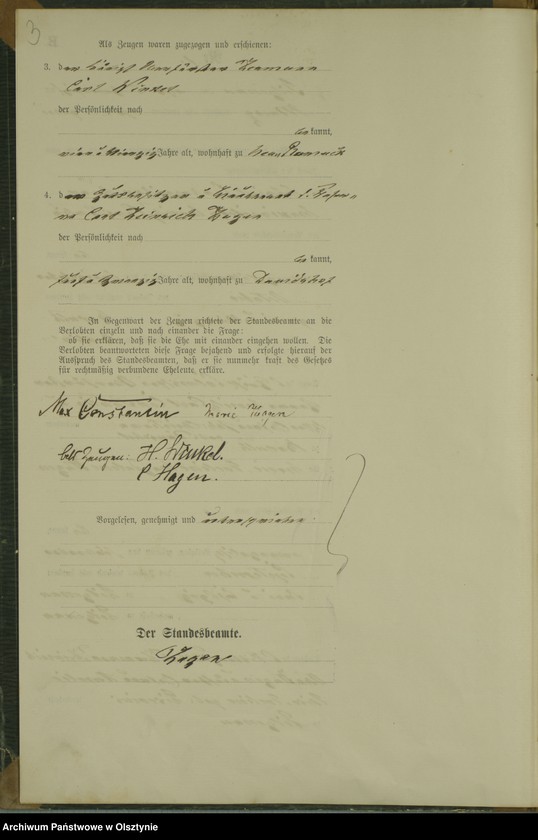 3
Als Zeugen waren zugezogen und erschienen:
3. der
Carl Winkel
der Persönlichkeit nach
be kannt,
Jahre alt, wohnhaft zu
4. der Gutsbesitzer u Lieutenant d. Reser-
ve Carl Heinrich Hagen
der Persönlichkeit nach
be kannt,
Jahre alt, wohnhaft zu
In Gegenwart der Zeugen richtete der Standesbeamte an die
Verlobten einzeln und nach einander die Frage:
ob sie erklären, daß sie die Ehe mit einander eingehen wollen. Die
Verlobten beantworteten diese Frage bejahend und erfolgte hierauf der
Ausspruch des Standesbeamten, daß er sie nunmehr kraft des Gesetzes
für rechtmäßig verbundene Eheleute erkläre.
Max Constantin Marie Hagen
als Zeugen: H. Winkel.
C Hagen.
Vorgelesen, genehmigt und unterschrieben
Der Standesbeamte.
Hagen
Archiwum Państwowe w Olsztynie